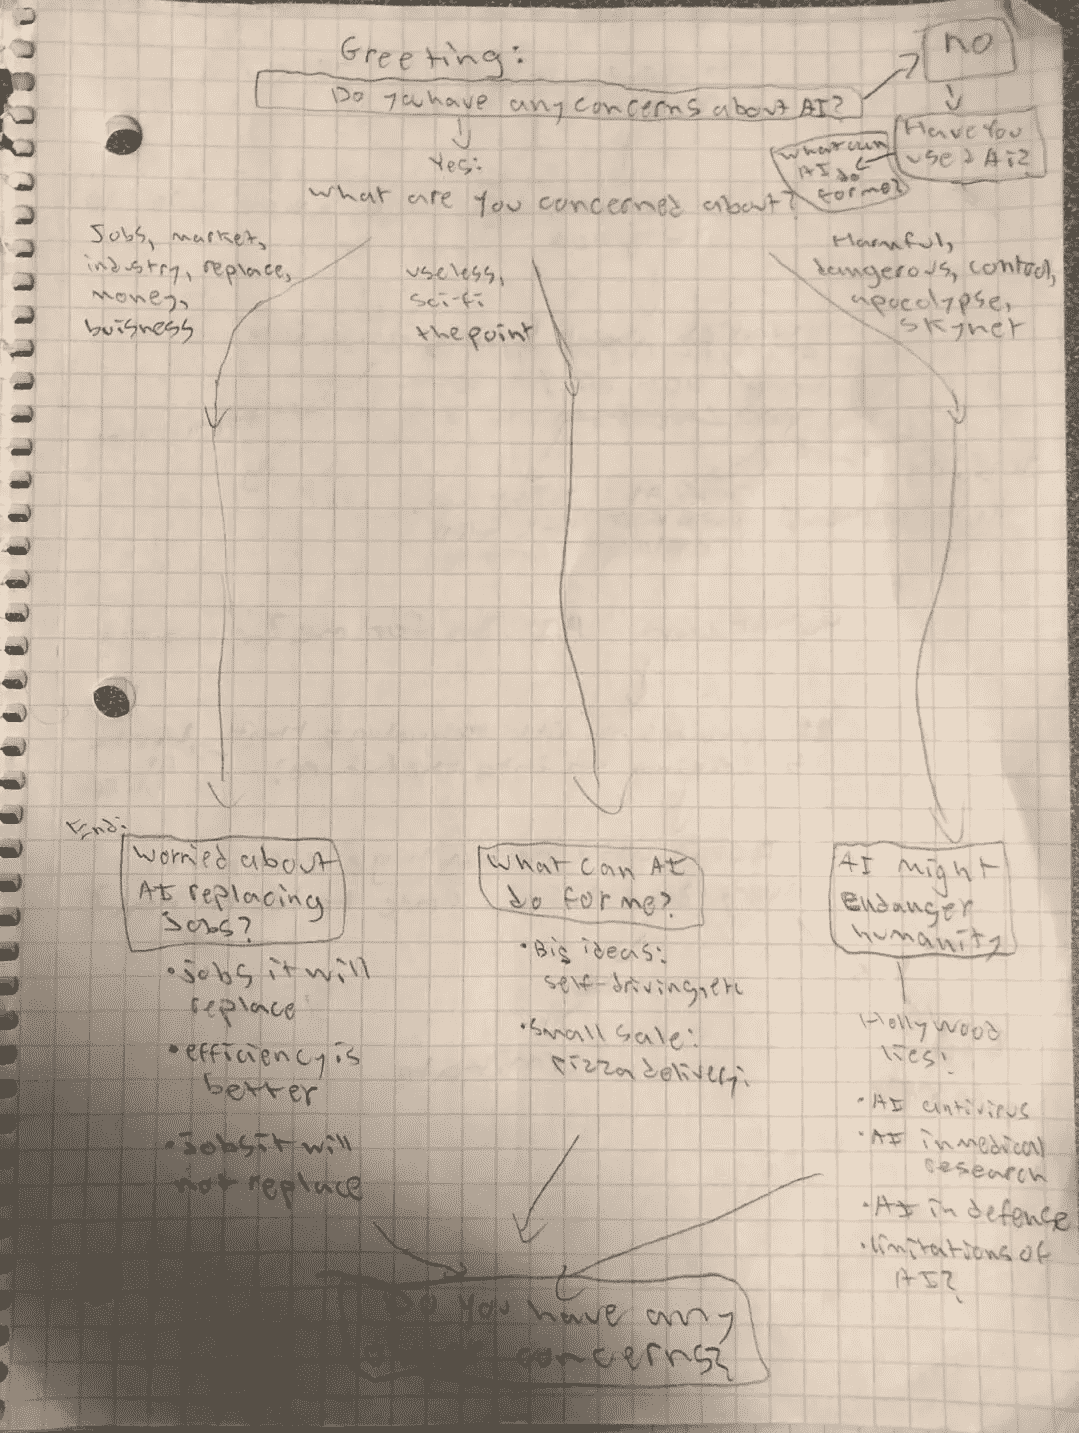 Greeting:
no
Do you have any concerns about AI?
Have You
used Ai?
What can
AI do
for me?
Yes:
What are you concerned about?
Jobs, market,
industry, replace,
money,
buisness
useless,
sci-fi
the point
Harmful,
dangerous, control,
apocolypse,
skynet
End:
Worried about
AI replacing
Jobs?
• jobs it will
replace
• efficiency is
better
• jobs it will
not replace
What can AI
do for me?
• Big ideas:
self-driving, etc
• Small sale:
Pizza delivery:
AI might
Endanger
humanity
Hollywood
lies:
• AI antivirus
• AI in medical
research
• AI in defense
• limitations of
AI?
Do You have any
concerns?